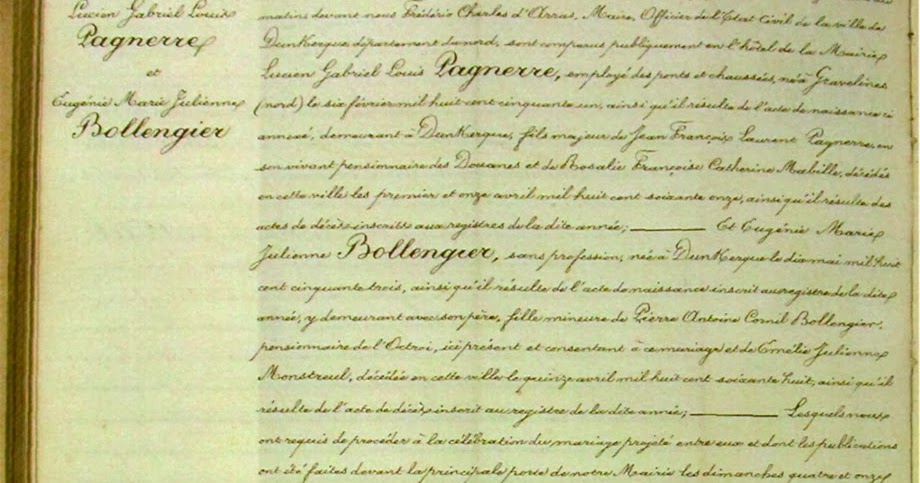 Lucien Gabriel Louis
Pagnerre
et
Eugénie Marie Julienne
Bollengier
matin, devant nous Frédéric Charles d'Arras, Maire, Officier de l'Etat Civil de la ville de
Dunkerque, département du nord, sont comparus publiquement en l'hôtel de la Mairie
Lucien Gabriel Louis Pagnerre, employé des ponts et chaussées, né à Gravelines
(nord) le six février mil huit cent cinquante un, ainsi qu'il résulte de l'acte de naissance ci
annexé, demeurant à Dunkerque, fils majeur de Jean François Laurent Pagnerre, en
son vivant pensionnaire des Douanes et de Rosalie Françoise Catherine Mabille, décédés
en cette ville les premier et onze avril mil huit cent soixante onze, ainsi qu'il résulte des
actes de décès inscrits aux registres de la dite année; ——— Et Eugénie Marie
Julienne Bollengier, sans profession, née à Dunkerque le dix mai mil huit
cent cinquante trois, ainsi qu'il résulte de l'acte de naissance inscrit au registre de la dite
année, y demeurant avec son père, fille mineure de Pierre Antoine Cornil Bollengier,
pensionnaire de l'Octroi, ici présent et consentant à ce mariage et de Emélie Julienne
Monstreul, décédée en cette ville le quinze avril mil huit cent soixante huit, ainsi qu'il
résulte de l'acte de décès inscrit au registre de la dite année; ——— Lesquels nous
ont requis de procéder à la célébration du mariage projeté entre eux et dont les publications
ont été faites devant la principale porte de notre Mairie les dimanches quatre et onze